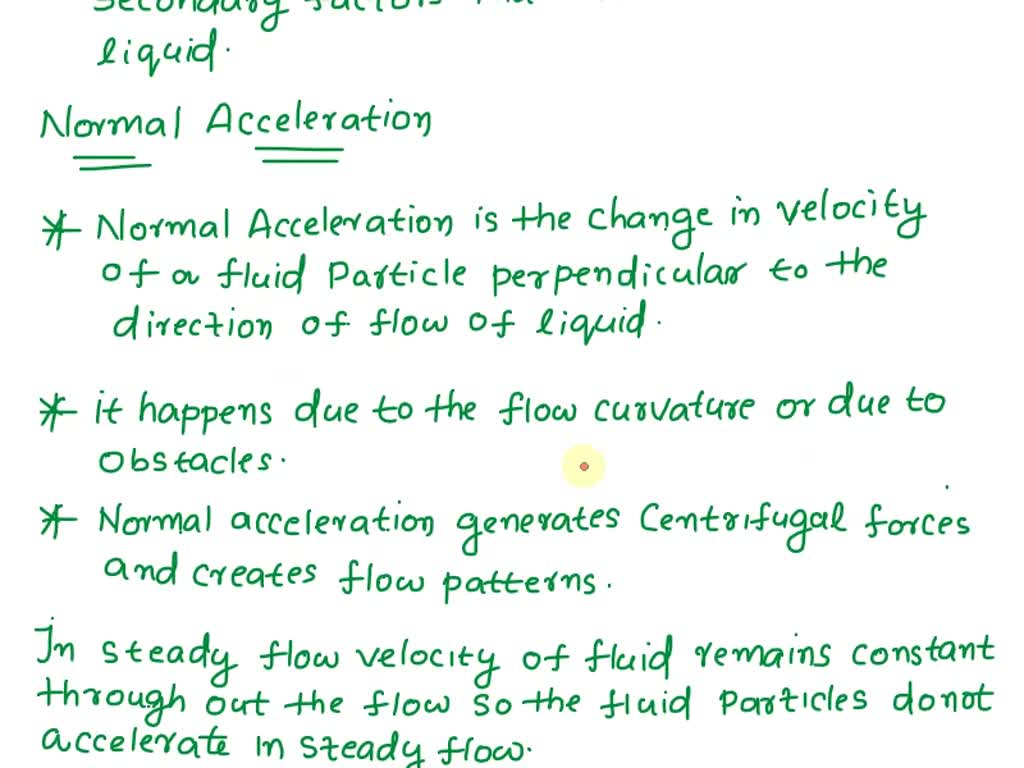 secondary factors
liquid.
Normal Acceleration
* Normal Acceleration is the change in velocity
of a fluid Particle perpendicular to the
direction of flow of liquid.
* it happens due to the flow curvature or due to
obstacles.
* Normal acceleration generates Centrifugal forces
and creates flow patterns.
In steady flow velocity of fluid remains constant
through out the flow so the fluid Particles donot
accelerate in steady flow.